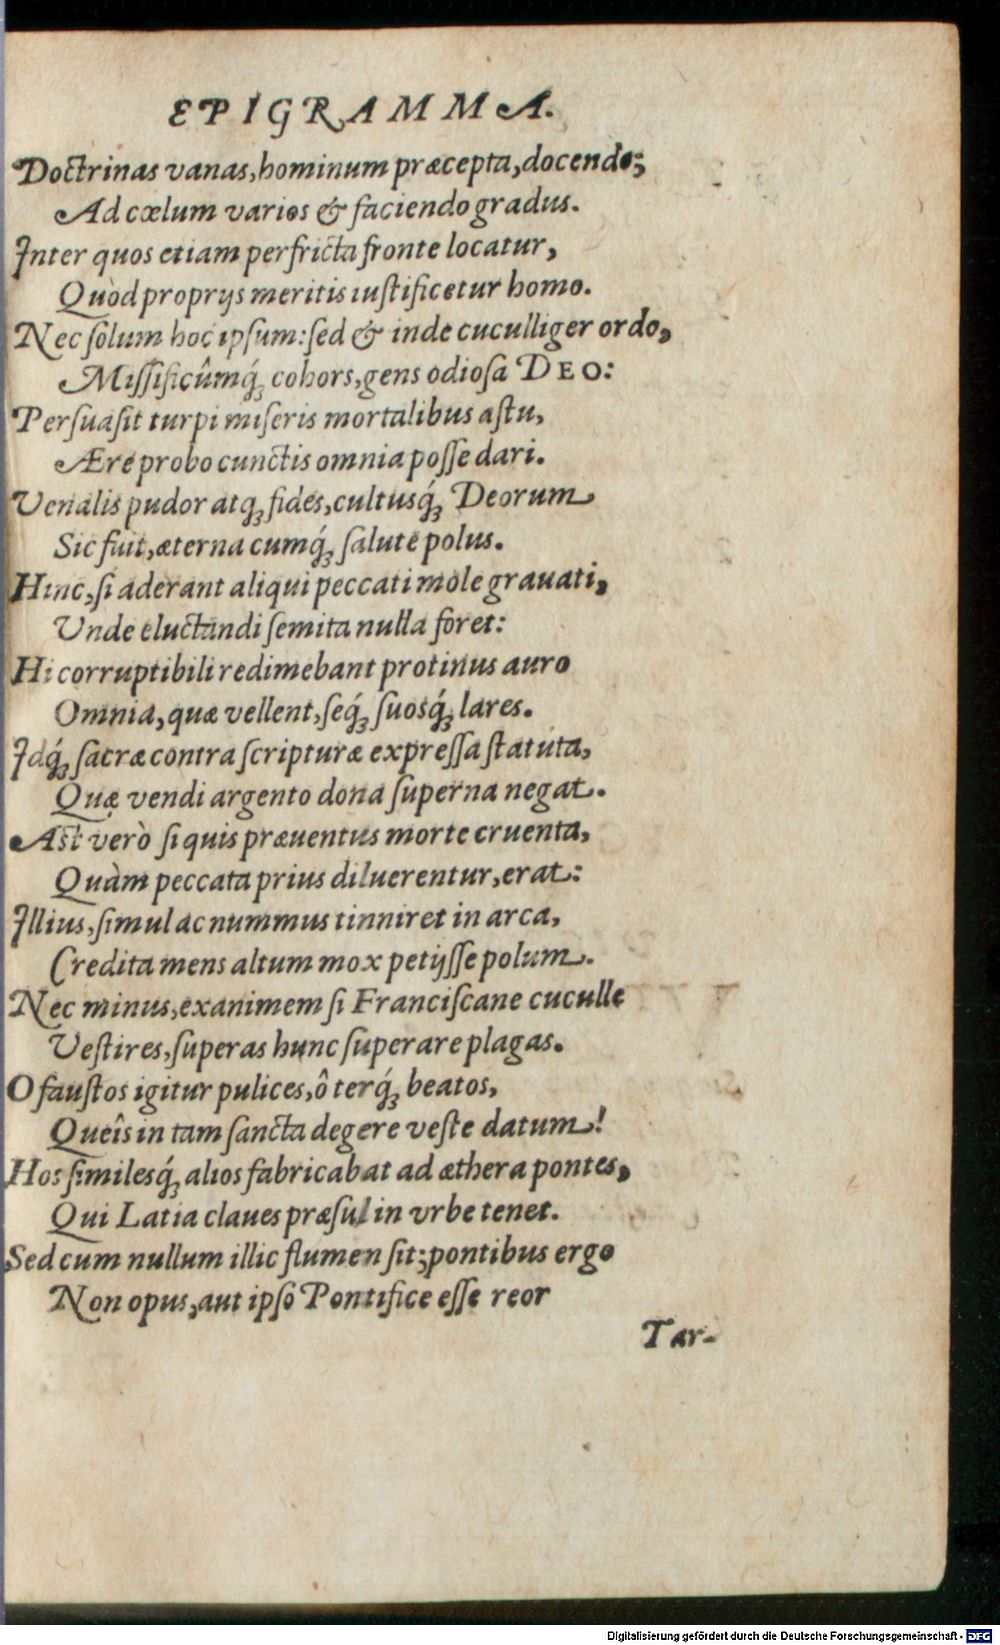 EPIGRAMMA.
Doctrinas vanas, hominum præcepta, docendo;
Ad cœlum varios & faciendo gradus.
Inter quos etiam perfricta fronte locatur,
Quòd proprijs meritis iustificetur homo.
Nec solum hoc ipsum: sed & inde cuculliger ordo,
Missificûmq́; cohors, gens odiosa DEO:
Persuasit turpi miseris mortalibus astu,
Ære probo cunctis omnia posse dari.
Venalis pudor atq; fides, cultusq́; Deorum
Sic fuit, æterna cumq́; salute polus.
Hinc, si aderant aliqui peccati mole grauati,
Vnde eluctandi semita nulla foret:
Hi corruptibili redimebant protinus auro
Omnia, quæ vellent, seq́; suosq́; lares.
Idq́; sacræ contra scripturæ expressa statuta,
Quæ vendi argento dona superna negat.
Ast verò si quis præuentus morte cruenta,
Quàm peccata prius diluerentur, erat:
Illius, simul ac nummus tinniret in arca,
Credita mens altum mox petijsse polum.
Nec minus, exanimem si Franciscane cuculle
Vestires, superas hunc superare plagas.
O faustos igitur pulices, ô terq́; beatos,
Queîs in tam sancta degere veste datum!
Hos similesq́; alios fabricabat ad æthera pontes,
Qui Latia claues præsul in vrbe tenet.
Sed cum nullum illic flumen sit; pontibus ergo
Non opus, aut ipso Pontifice esse reor
Tar-
Digitalisierung gefördert durch die Deutsche Forschungsgemeinschaft - DFG